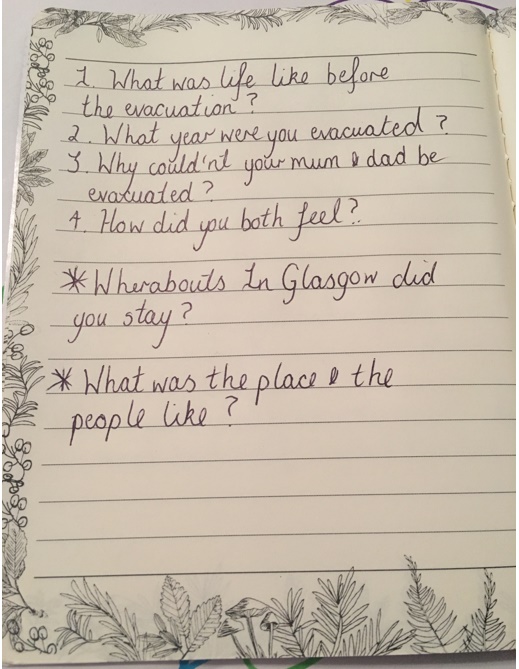 1. What was life like before
the evacuation?
2. What year were you evacuated?
3. Why could'nt your mum & dad be
evacuated?
4. How did you both feel?
* Wherabouts In Glasgow did
you stay?
* What was the place & the
people like?